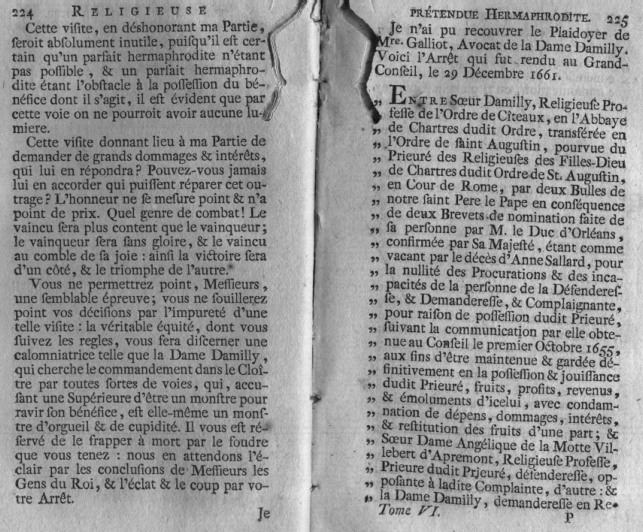 224 RELIGIEUSE
Cette visite, en déshonorant ma Partie,
seroit absolument inutile, puisqu'il est cer-
tain qu'un parfait hermaphrodite n'étant
pas possible, & un parfait hermaphro-
dite étant l'obstacle à la possession du bé-
néfice dont il s'agit, il est évident que par
cette voie on ne pourroit avoir aucune lu-
miere.
Cette visite donnant lieu à ma Partie de
demander de grands dommages & intérêts,
qui lui en répondra? Pouvez-vous jamais
lui en accorder qui puissent réparer cet ou-
trage? L'honneur ne se mesure point & n'a
point de prix. Quel genre de combat! Le
vaincu sera plus content que le vainqueur;
le vainqueur sera sans gloire, & le vaincu
au comble de sa joie: ainsi la victoire sera
d'un côté, & le triomphe de l'autre.
Vous ne permettrez point, Messieurs,
une semblable épreuve; vous ne souillerez
point vos décisions par l'impureté d'une
telle visite: la véritable équité, dont vous
suivez les regles, vous fera discerner une
calomniatrice telle que la Dame Damilly,
qui cherche le commandement dans le Cloî-
tre par toutes sortes de voies, qui, accu-
sant une Supérieure d'être un monstre pour
ravir son bénéfice, est elle-même un monf-
tre d'orgueil & de cupidité. Il vous est ré-
servé de le frapper à mort par le foudre
que vous tenez: nous en attendons l'é-
clair par les conclusions de Messieurs les
Gens du Roi, & l'éclat & le coup par vo-
tre Arrêt.
Je
PRÉTENDUE HERMAPHRODITE. 225
Je n'ai pu recouvrer le Plaidoyer de
Mre. Galliot, Avocat de la Dame Damilly.
Voici l'Arrêt qui fut rendu au Grand-
Conseil, le 29 Décembre 1661.
„ ENTRE Sœur Damilly, Religieuse Pro-
„ fesse de l'Ordre de Cîteaux, en l'Abbaye
„ de Chartres dudit Ordre, transférée en
„ l'Ordre de saint Augustin, pourvue du
„ Prieuré des Religieuses des Filles-Dieu
„ de Chartres dudit Ordre de St. Augustin,
„ en Cour de Rome, par deux Bulles de
„ notre saint Pere le Pape en conséquence
„ de deux Brevets de nomination faite de
„ sa personne par M. le Duc d'Orléans,
„ confirmée par Sa Majesté, étant comme
„ vacant par le décès d'Anne Sallard, pour
„ la nullité des Procurations & des inca-
„ pacités de la personne de la Défenderes-
„ se, & Demanderesse, & Complaignante,
„ pour raison de possession dudit Prieuré,
„ suivant la communication par elle obte-
„ nue au Conseil le premier Octobre 1655,
„ aux fins d'être maintenue & gardée dé-
„ finitivement en la possession & jouissance
„ dudit Prieuré, fruits, profits, revenus,
„ & émolumens d'icelui, avec condam-
„ nation de dépens, dommages, intérêts,
„ & restitution des fruits d'une part; &
„ Sœur Dame Angélique de la Motte Vil-
„ lebert d'Apremont, Religieuse Professe,
„ Prieure dudit Prieuré, défenderesse, op-
„ posante à ladite Complainte, d'autre: &
„ la Dame Damilly, demanderesse en Re-
Tome VI. P